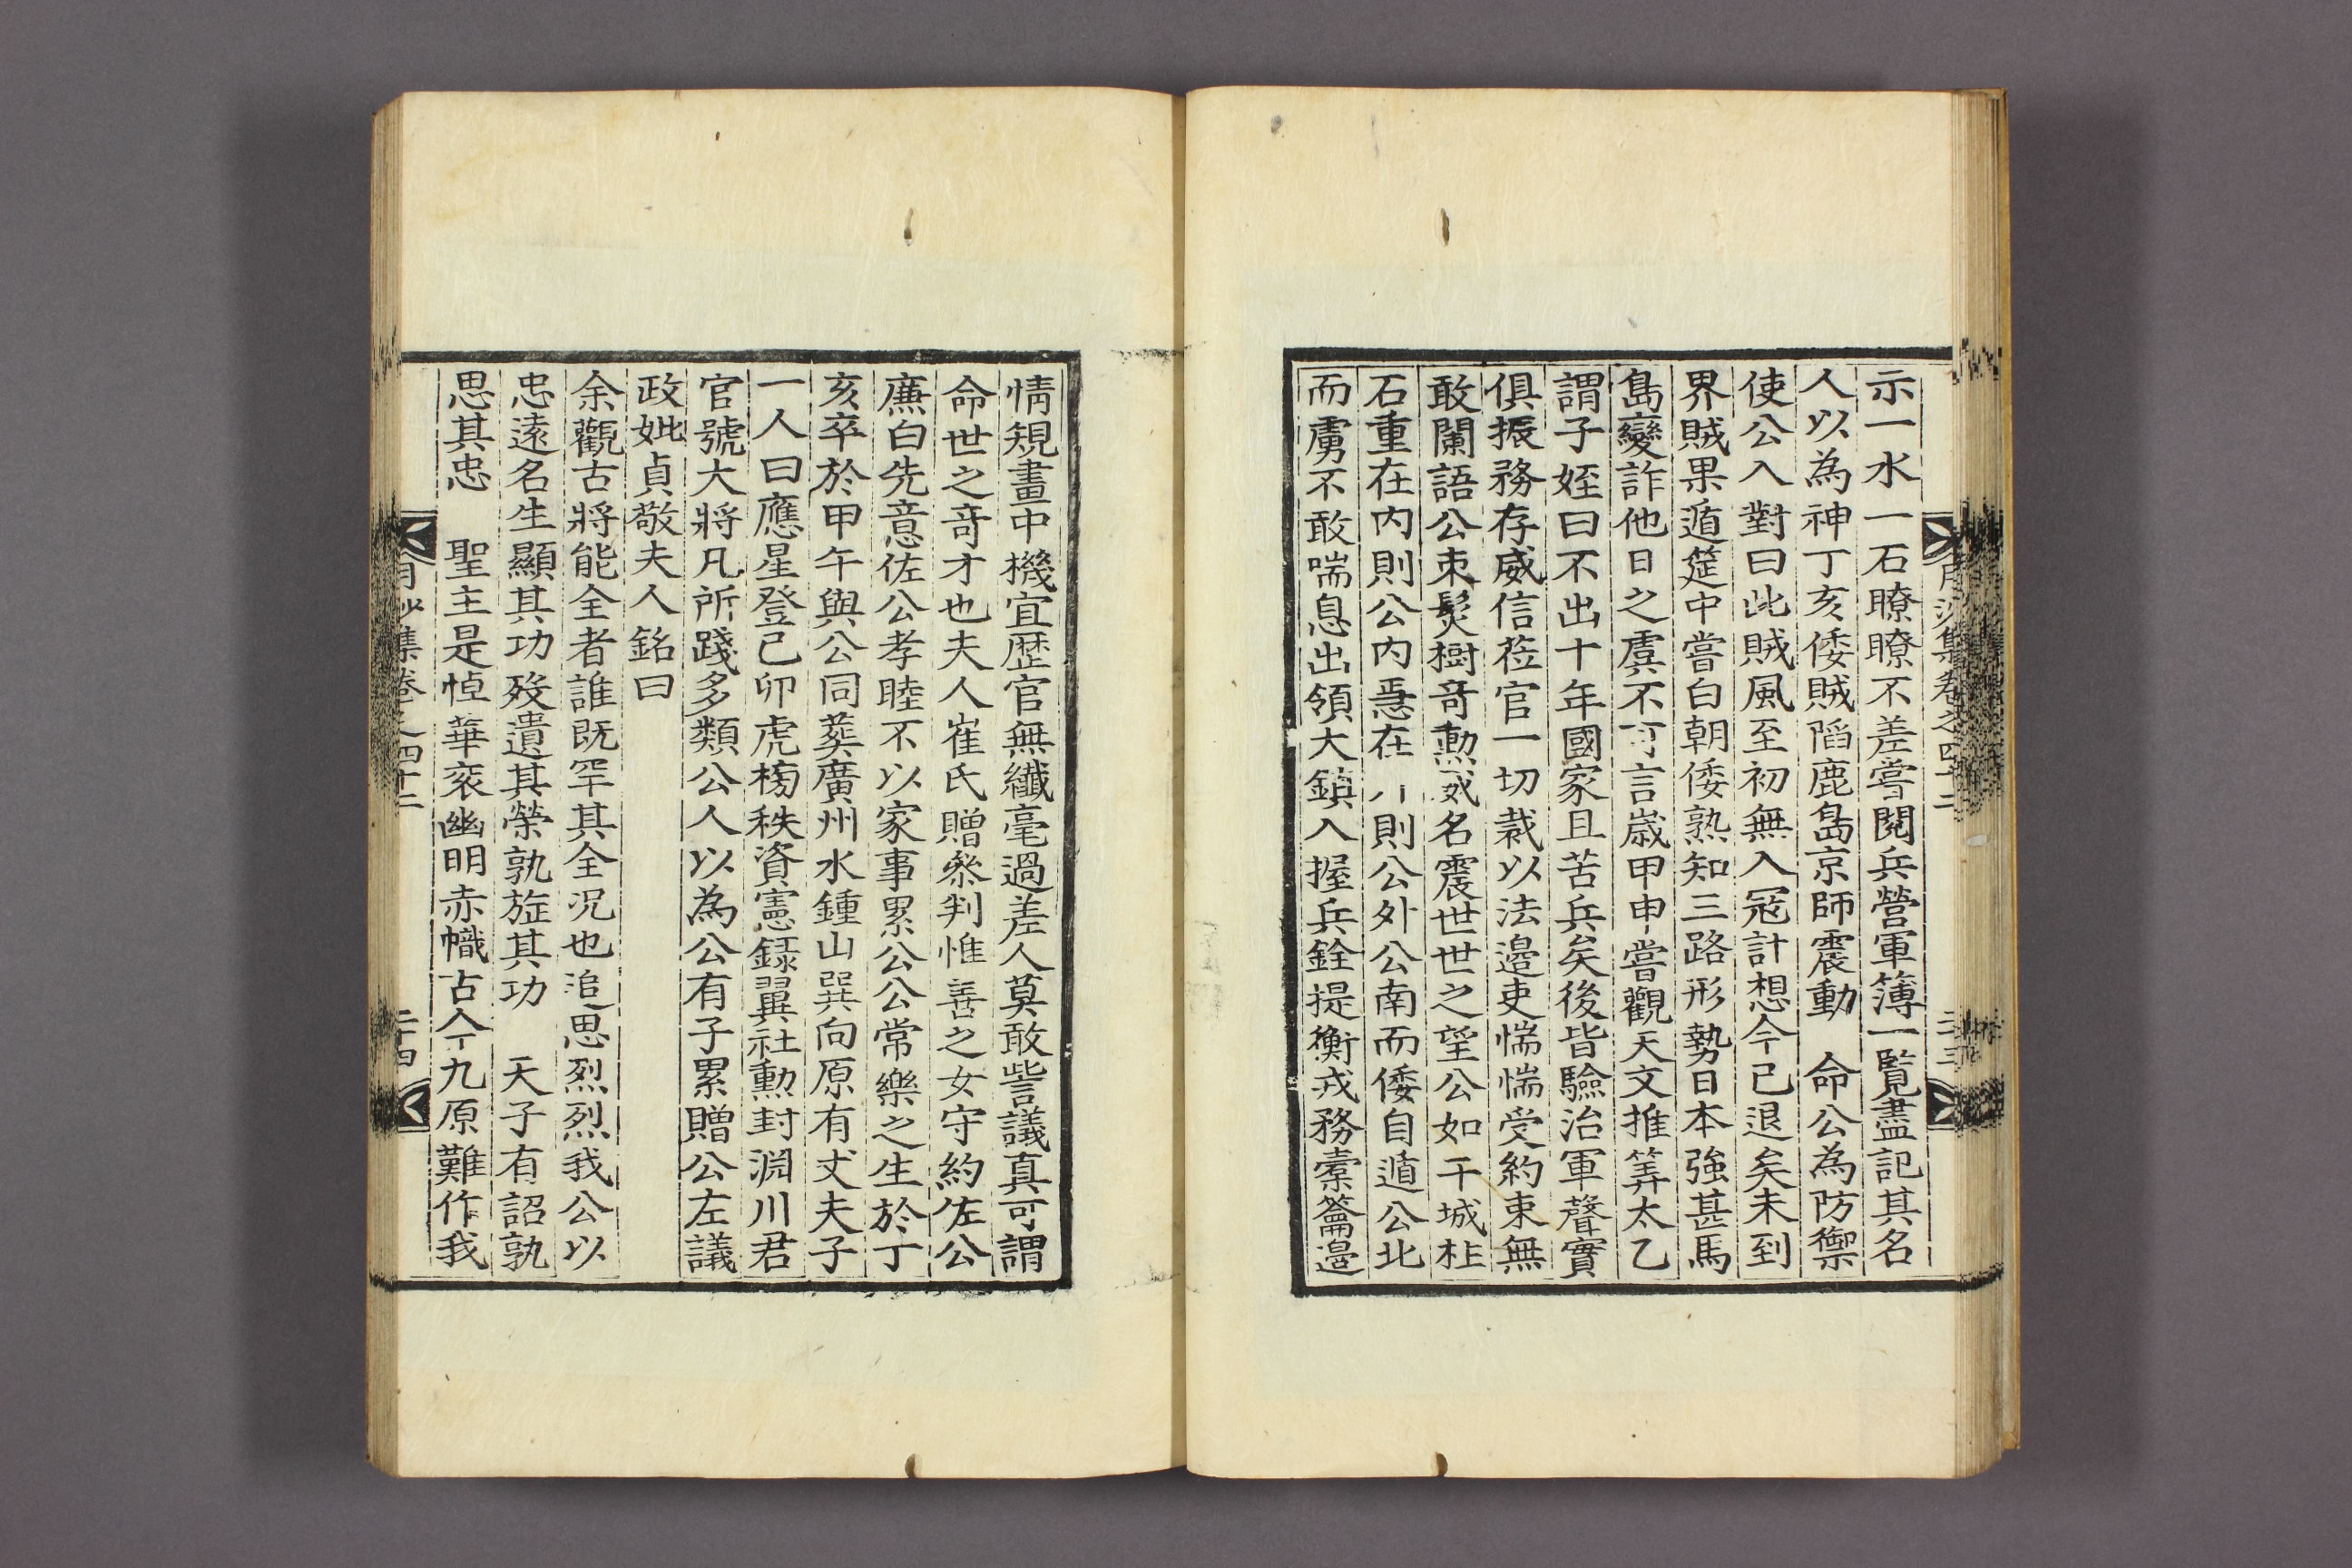 示一水一石瞭瞭不差嘗閱兵營軍簿一覽盡記其名
人以為神丁亥倭賊陷鹿島京師震動　命公為防禦
使公入對曰此賊風至初無入冦計想今已退矣未到
界賊果遁筵中嘗白朝倭熟知三路形勢日本強甚馬
島變詐他日之虞不可言歲甲申嘗觀天文推筭太乙
謂子姪曰不出十年國家且苦兵矣後皆驗治軍聲實
俱振務存威信莅官一切裁以法邉吏惴惴受約束無
敢闌語公朿髮樹竒勲威名震世世之望公如干城柱
石重在内則公内惡在則公外公南而倭自遁公北
而虜不敢喘息出領大鎮入握兵銓提衡戎務櫜籥邉
月沙集卷之四十二
二十三
情規畫中機宜歷官無纎毫過差人莫敢訾議真可謂
命世之竒才也夫人崔氏贈叅判惟善之女守約佐公
亷白先意佐公孝睦不以家事累公公常樂之生於丁
亥卒於甲午與公同葬廣州水鍾山巽向原有丈夫子
一人曰應星登己卯虎榜秩資憲録翼社勲封淵川君
官號大將凡所踐多類公人以為公有子累贈公左議
政妣貞敬夫人銘曰
余觀古將能全者誰既罕其全况也追思烈烈我公以
忠遠名生顯其功殁遺其榮孰旌其功　天子有詔孰
思其忠　聖主是悼華衮幽明赤幟古今九原難作我
月沙集卷之四十二
二十四